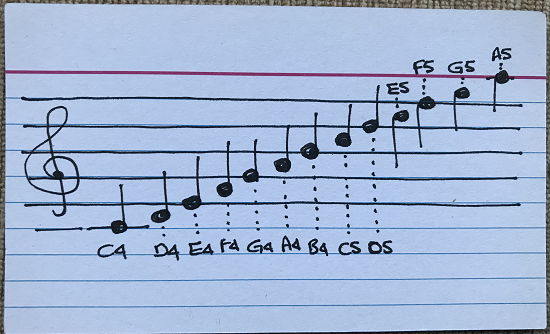 A5
F5 G5
E5
C4 D4 E4 F4 G4 A4 B4 C5 D5